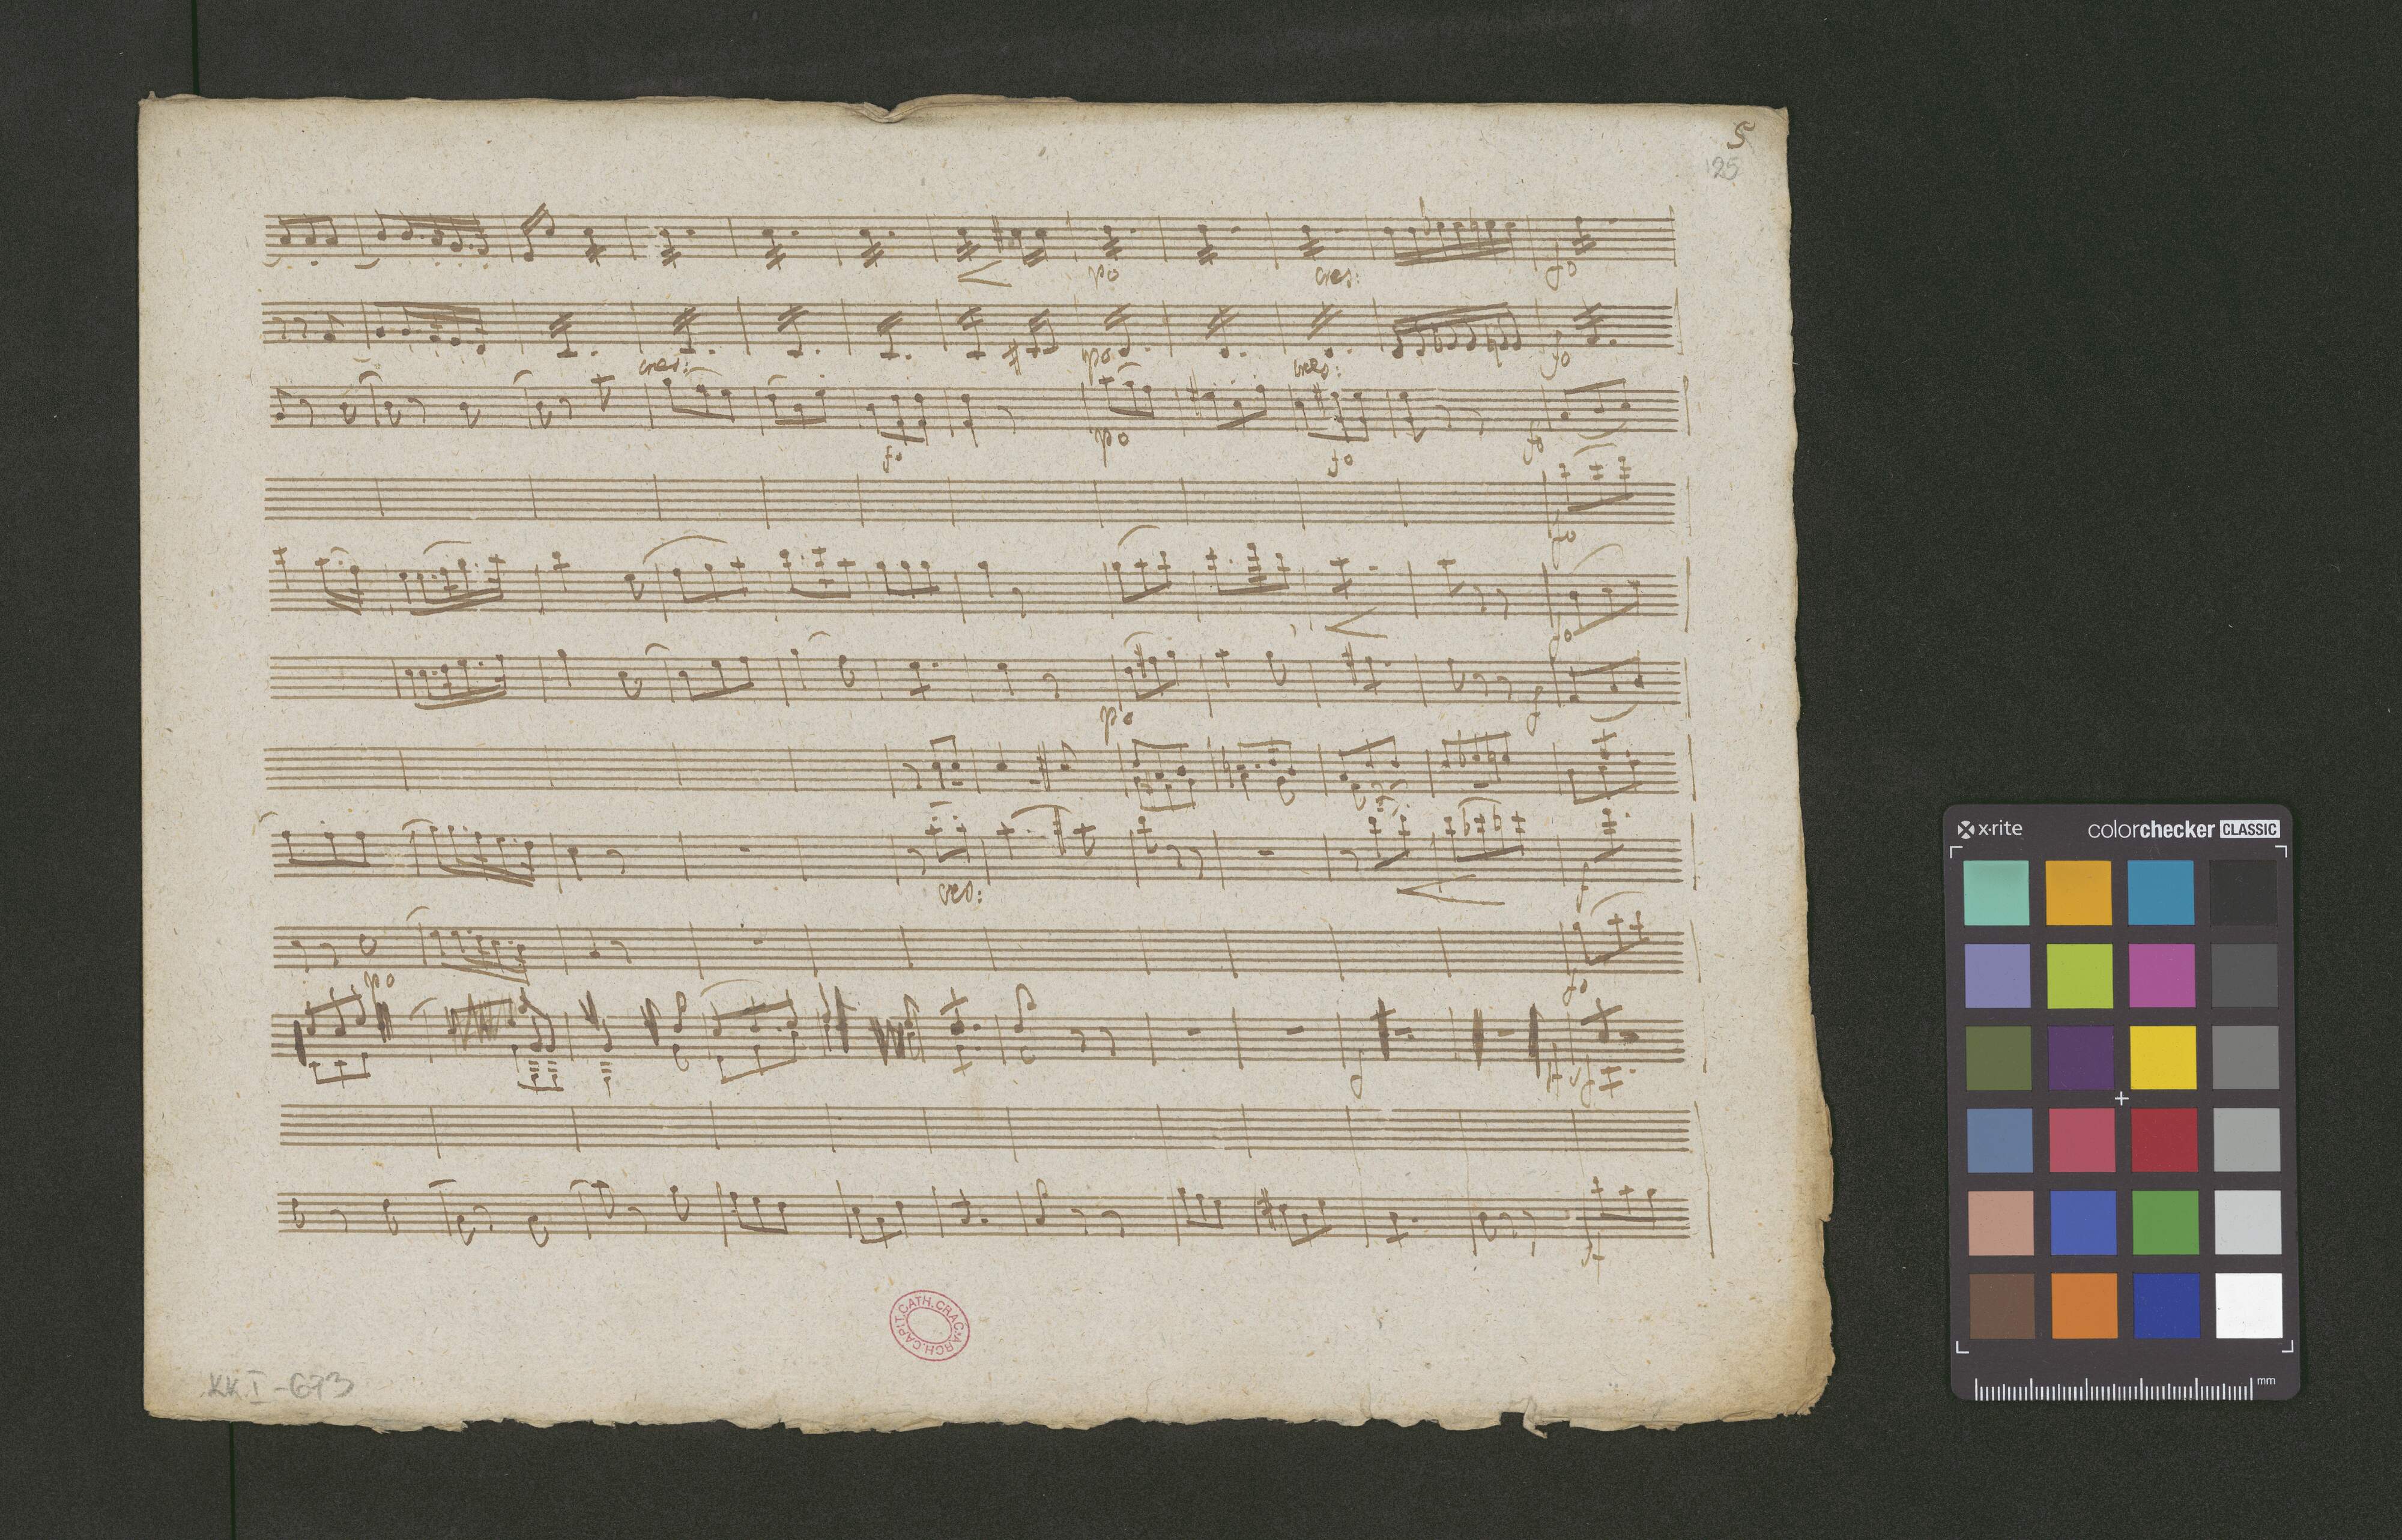 5
25
po cres: fo
cres: po cres: fo
fo po fo fo
fo
fo
po f
cres: f
po fo
f
f
CAPIT. CATH. CRAC. ARCH.
KK. I-673
x-rite colorchecker CLASSIC
mm